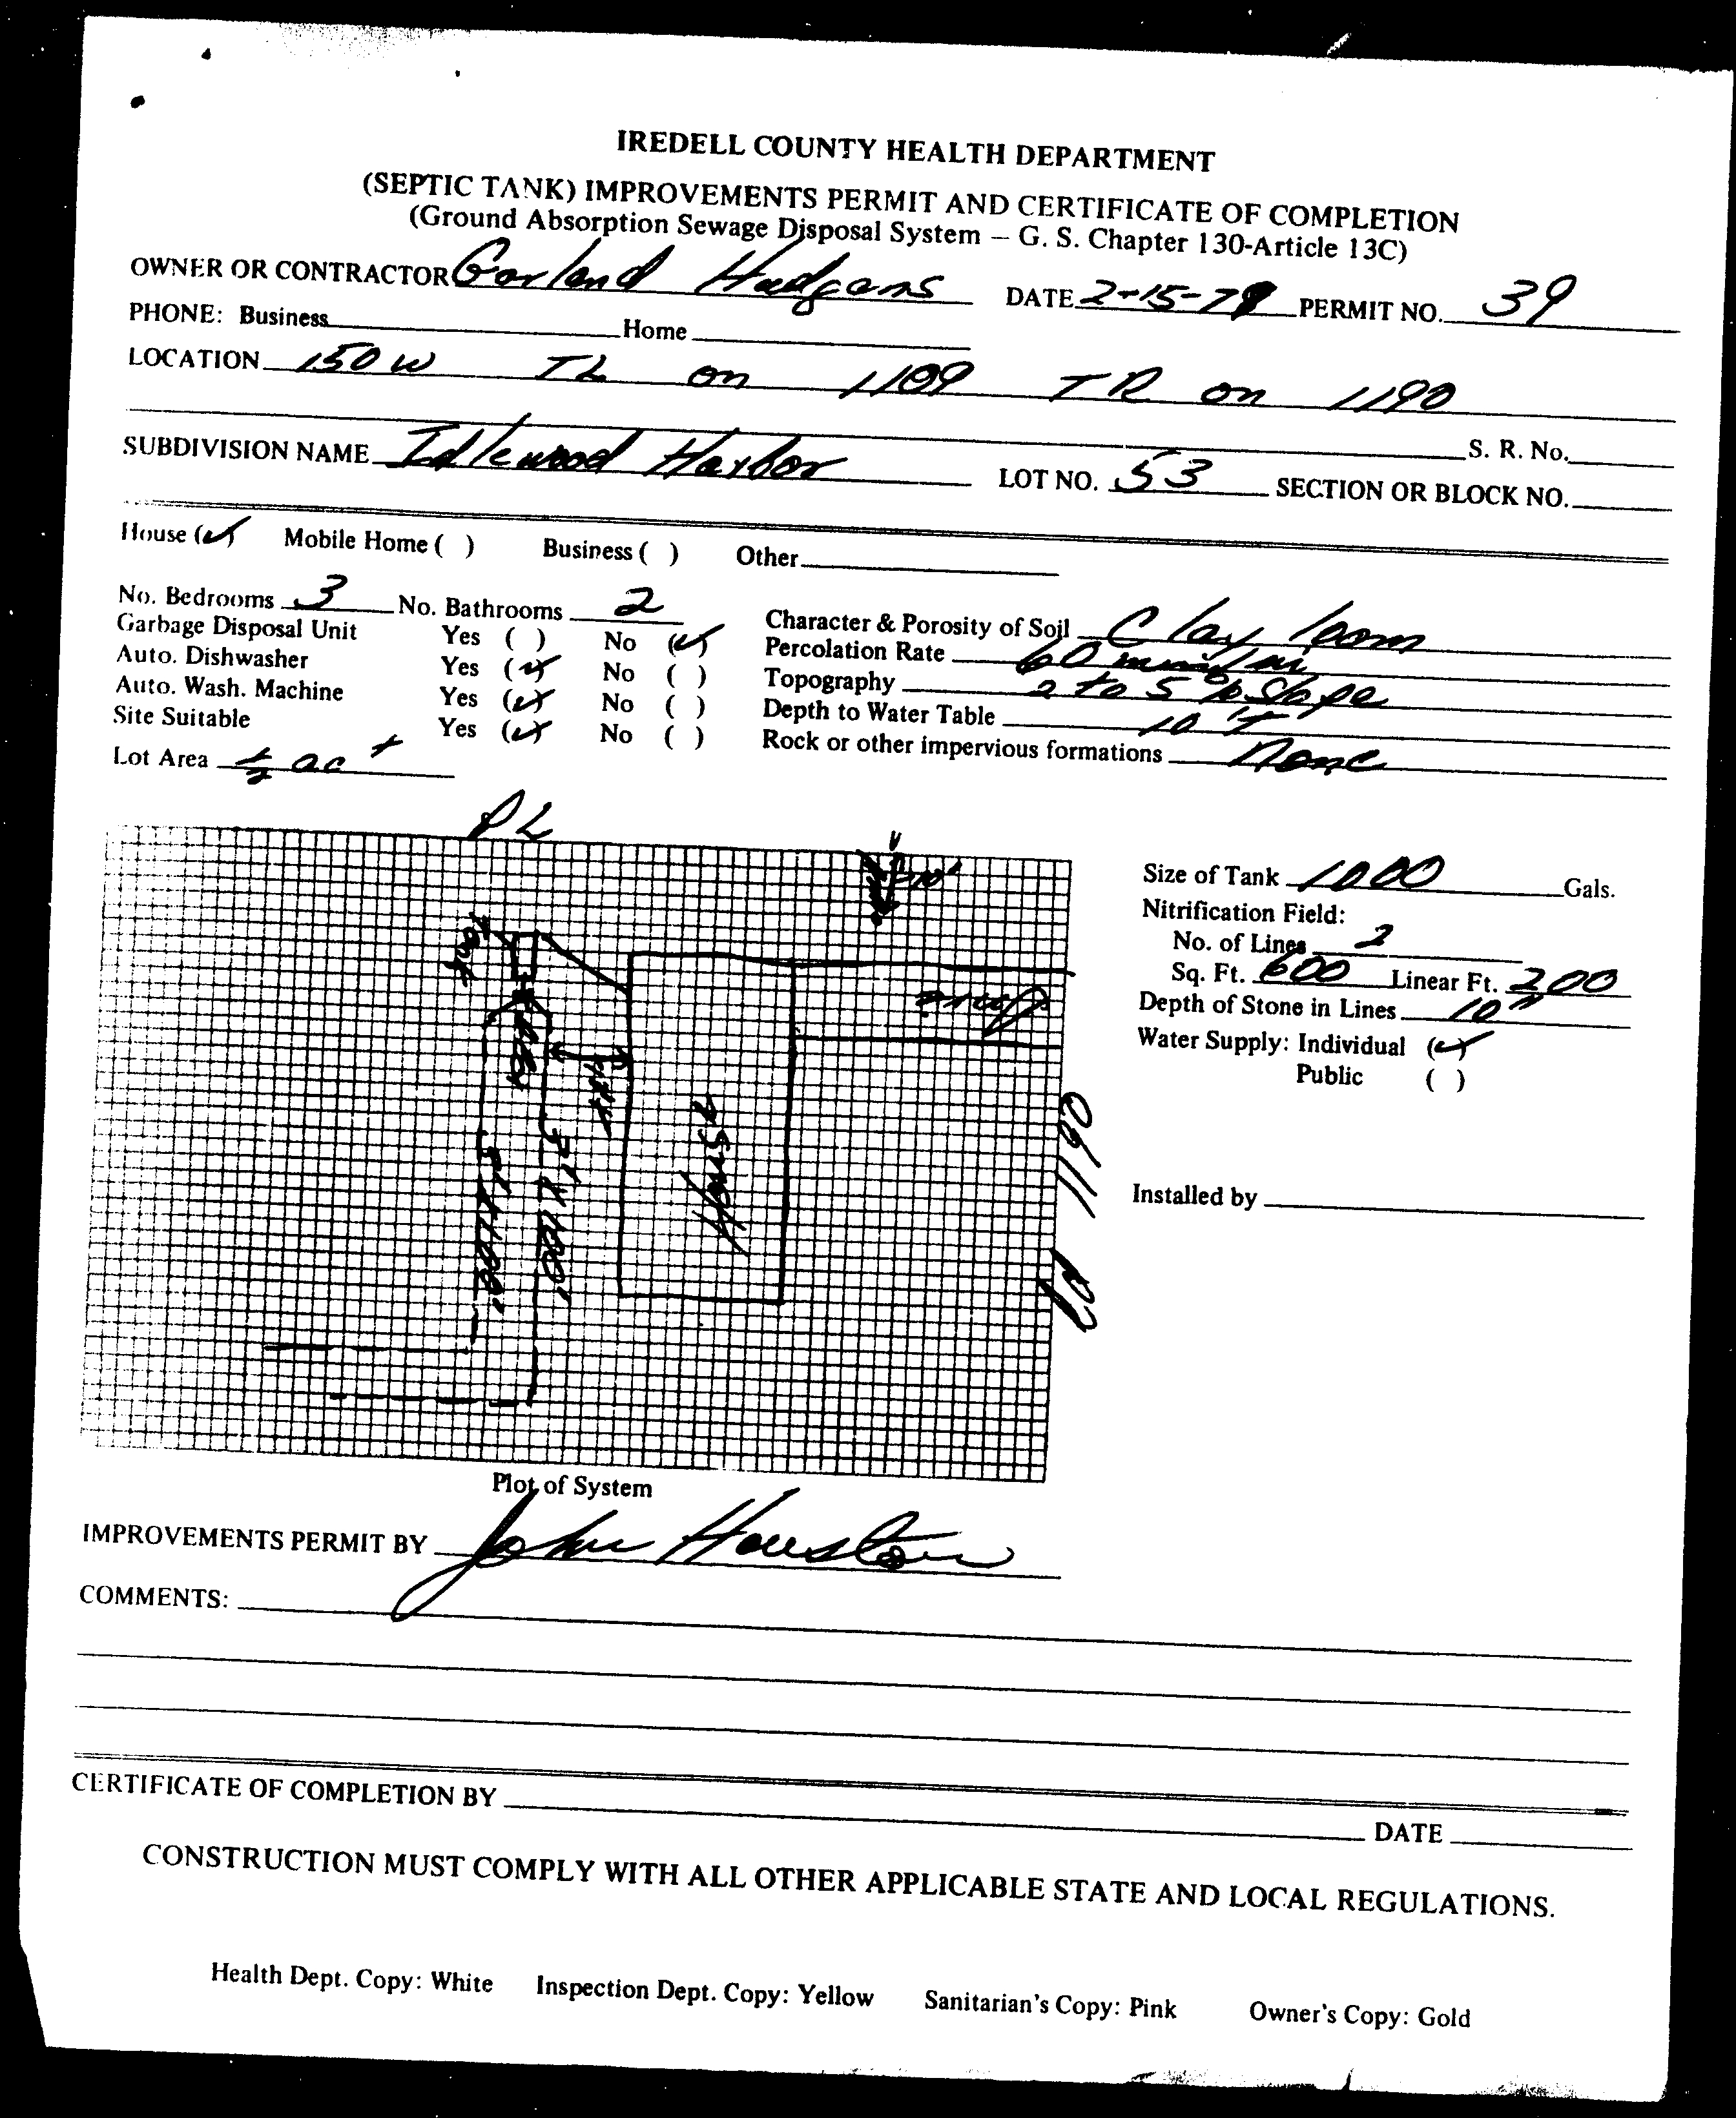 IREDELL COUNTY HEALTH DEPARTMENT
(SEPTIC TANK) IMPROVEMENTS PERMIT AND CERTIFICATE OF COMPLETION
(Ground Absorption Sewage Disposal System – G. S. Chapter 130-Article 13C)
OWNER OR CONTRACTOR Garland Hudgens DATE 2-15-79 PERMIT NO. 39
PHONE: Business Home
LOCATION 150 W TL on 1109 TR on 1190
S. R. No.
SUBDIVISION NAME Idlewood Harbor LOT NO. 53 SECTION OR BLOCK NO.
House (✓) Mobile Home ( ) Business ( ) Other
No. Bedrooms 3 No. Bathrooms 2
Garbage Disposal Unit Yes ( ) No (✓)
Auto. Dishwasher Yes (✓) No ( )
Auto. Wash. Machine Yes (✓) No ( )
Site Suitable Yes (✓) No ( )
Lot Area ½ ac +
Character & Porosity of Soil Clay loam
Percolation Rate 60 min/in
Topography 2 to 5 % Slope
Depth to Water Table 10'+
Rock or other impervious formations None
PL
10'
Drive
House
3'x100'
3'x100'
Rd 1190
Size of Tank 1000 Gals.
Nitrification Field:
No. of Lines 2
Sq. Ft. 600 Linear Ft. 200
Depth of Stone in Lines 10"
Water Supply: Individual (✓)
Public ( )
Installed by
Plot of System
IMPROVEMENTS PERMIT BY John Houston
COMMENTS:
CERTIFICATE OF COMPLETION BY
DATE
CONSTRUCTION MUST COMPLY WITH ALL OTHER APPLICABLE STATE AND LOCAL REGULATIONS.
Health Dept. Copy: White Inspection Dept. Copy: Yellow Sanitarian's Copy: Pink Owner's Copy: Gold